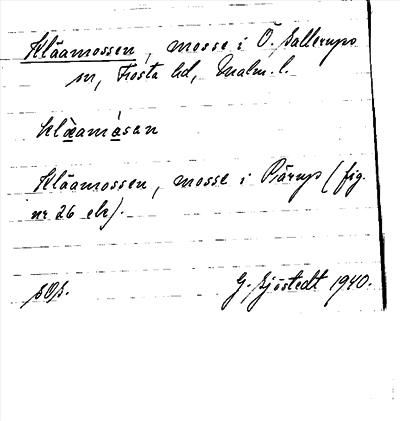 Kläamossen, mosse i Ö. Sallerups
sn, Frosta hd, Malm. l.
klæ̀amåsan
Kläamossen, mosse i Pärup (fig.
nr 26 ek).
G. Sjöstedt 1940.